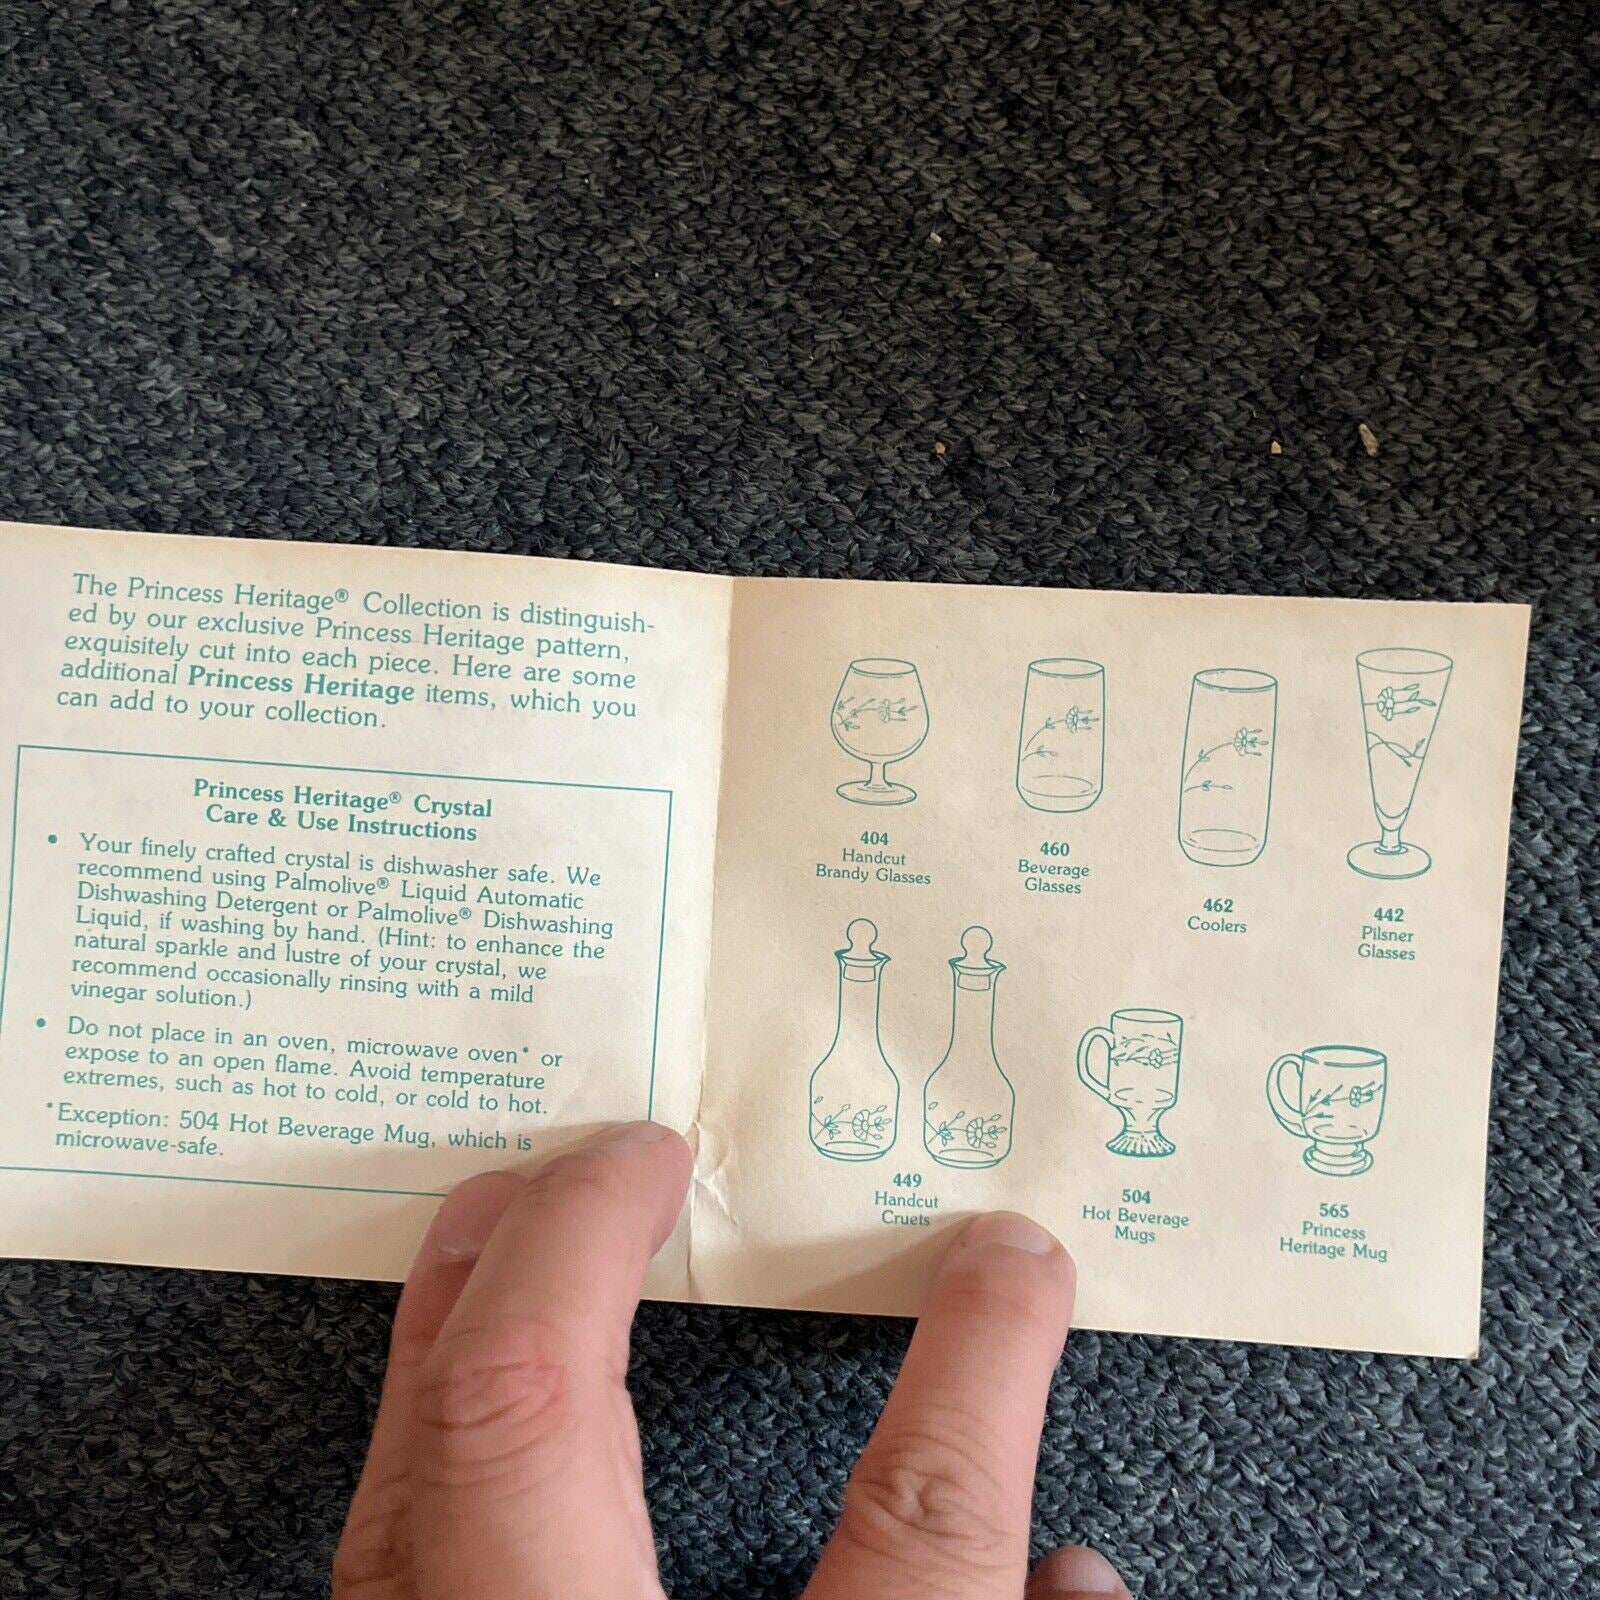 The Princess Heritage® Collection is distinguish-
ed by our exclusive Princess Heritage pattern,
exquisitely cut into each piece. Here are some
additional Princess Heritage items, which you
can add to your collection.
Princess Heritage® Crystal
Care & Use Instructions
• Your finely crafted crystal is dishwasher safe. We
recommend using Palmolive® Liquid Automatic
Dishwashing Detergent or Palmolive® Dishwashing
Liquid, if washing by hand. (Hint: to enhance the
natural sparkle and lustre of your crystal, we
recommend occasionally rinsing with a mild
vinegar solution.)
• Do not place in an oven, microwave oven* or
expose to an open flame. Avoid temperature
extremes, such as hot to cold, or cold to hot.
*Exception: 504 Hot Beverage Mug, which is
microwave-safe.
404
Handcut
Brandy Glasses
460
Beverage
Glasses
462
Coolers
442
Pilsner
Glasses
449
Handcut
Cruets
504
Hot Beverage
Mugs
565
Princess
Heritage Mug